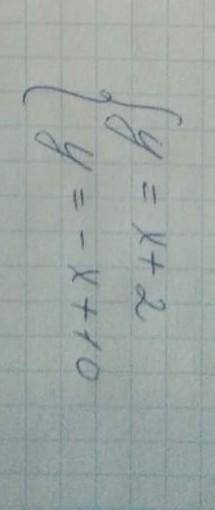 y = x + 2
y = - x + 10